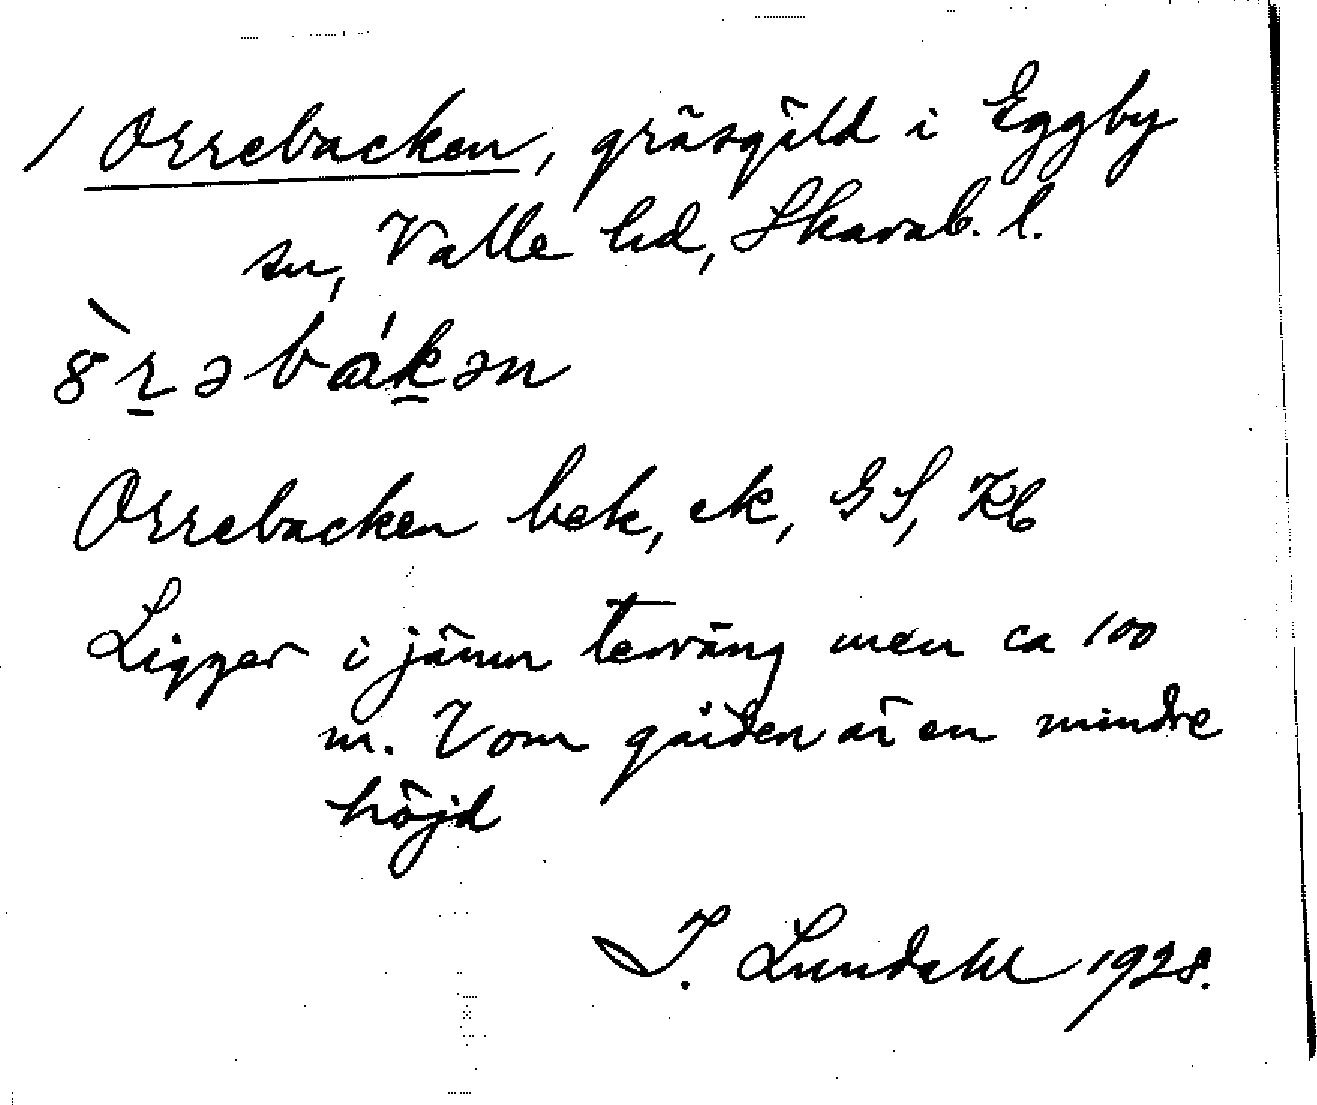 1 Orrebacken, gräsgäld i Eggby
sn, Valle hd, Skarab. l.
8̀r̲əbák̲ən
Orrebacken bek, ek, GS, Kb
Ligger i jämn terräng men ca 100
m. V om gården är en mindre
höjd
I. Lundahl 1928.